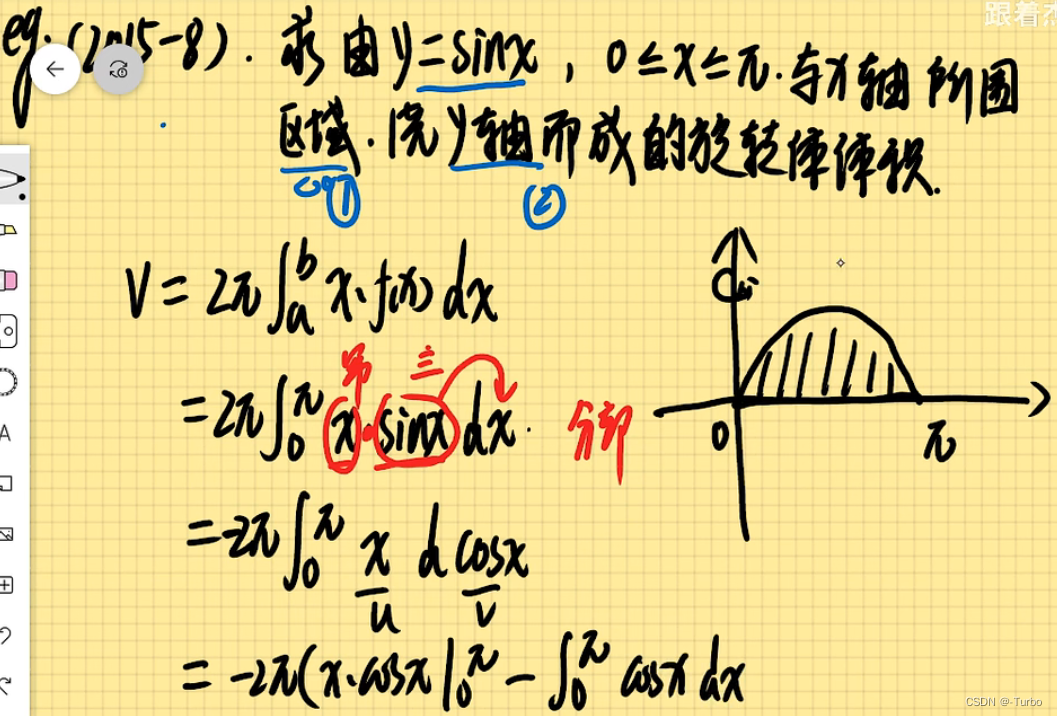 跟着杰
eg. (2015-8). 求由y=sinx, 0≤x≤π.与x轴所围
区域.绕y轴而成的旋转体体积.
①
②
V = 2π∫_a^b x·f(x) dx
幂 三
= 2π∫_0^π x·sinx dx. 分部
0 π
= -2π∫_0^π x d cosx
u v
= -2π(x·cosx|_0^π - ∫_0^π cosx dx
CSDN @-Turbo